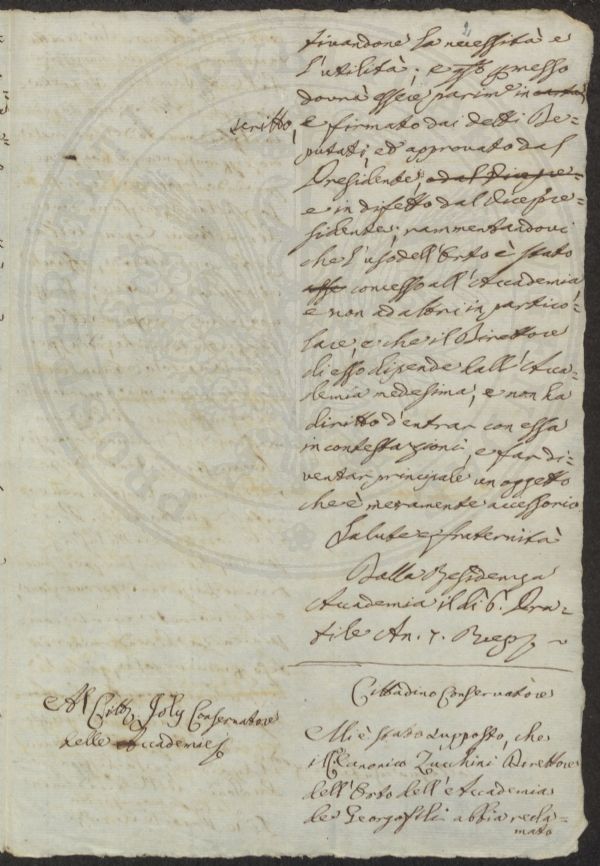 2
tivandone la necessità e
l'utilità; e presso
dovrà essere parim.e in carta
scritto,
e firmato dai detti De-
putati, ed approvato dal
Presidente, o dal Vicepre-
e in difetto dal Vicepre-
sidente; rammentandovi
che l'uso dell'Orto è stato
esse concesso all'Accademia
e non ad altri in partico-
lare, e che il Direttore
di esso dipende dall'Acca-
demia medesima, e non ha
diritto d'entrar con essa
in contestazioni, e far di-
ventar principale un oggetto
che è meramente accessorio
Salute e fraternità
Dalla Residenza
Accademia il dì 6. Pra-
tile An. 7. Rep.
Cittadino Conservatore
Al Citt. Joly Conservatore
delle Accademie
Mi è stato supposto, che
il Canonico Zucchini Direttore
dell'Orto dell'Accademia
de Georgofili abbia recla-
mato